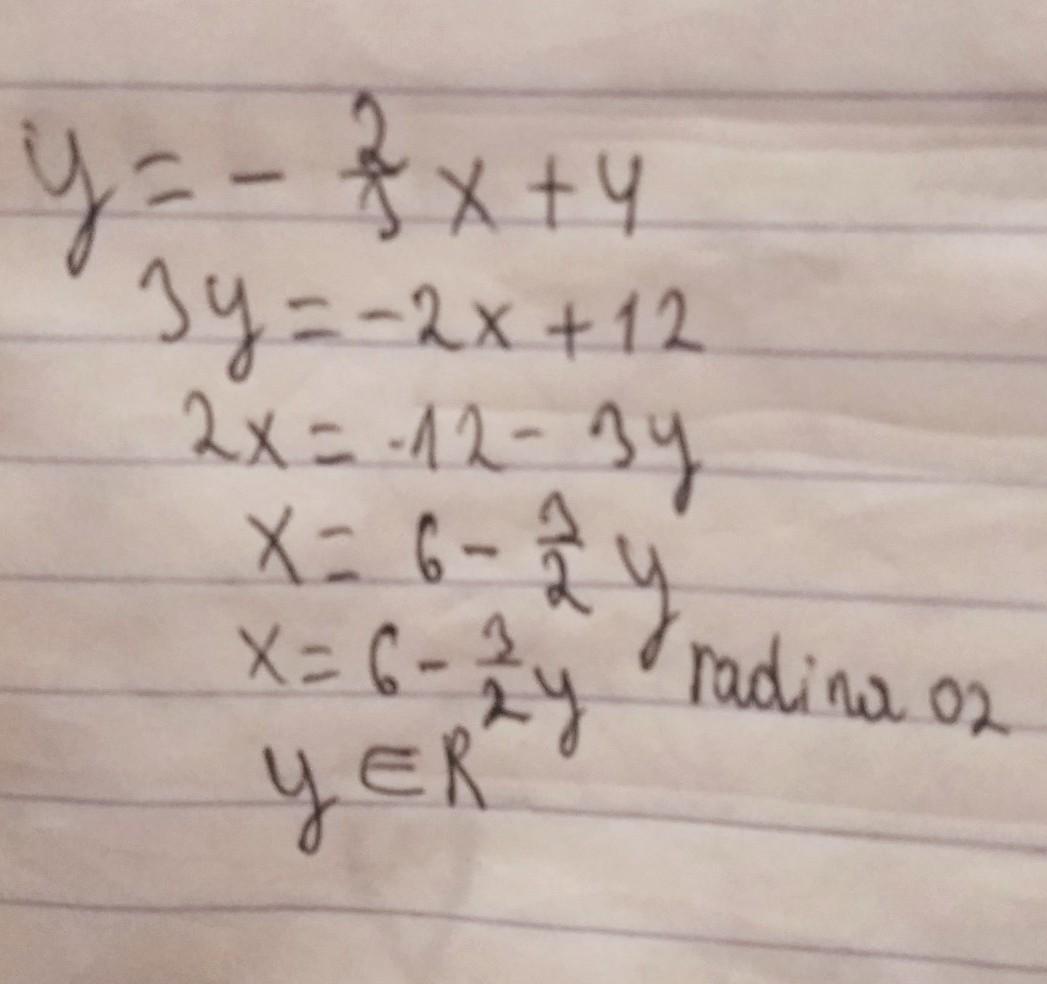 y = - 2/3 x + 4
3y = -2x + 12
2x = -12 - 3y
x = 6 - 3/2 y
x = 6 - 3/2 y radina 02
y ∈ R